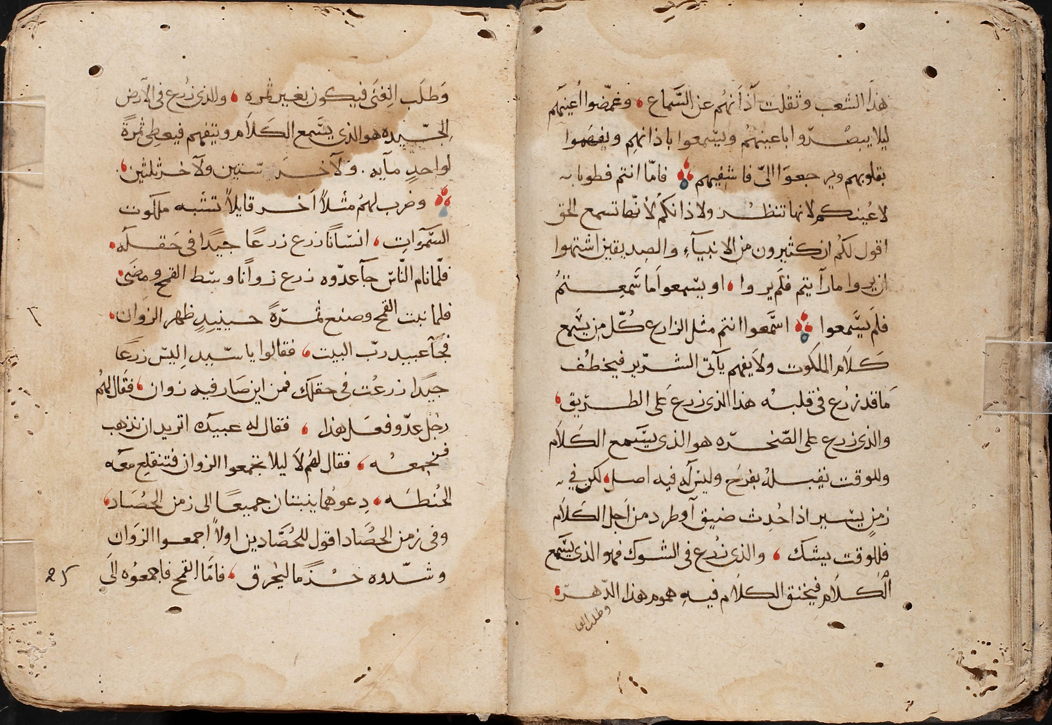 هذا الشعب وثقلت آذانهم عن السَّماع وغمّضوا أعينهم
ليلا يبصروا باعينهم ويسمعوا باذانهم ويفهموا
بقلوبهم ويرجعوا اليّ فاشفيهم فامّا انتم فطوبا
لاعينكم لانها تنظر ولاذانكم لأنها تسمع الحق
اقول لكم ان كثيرون من الانبياء والصديقين اشتهوا
ان يروا ما رأيتم فلم يروا او يسمعوا ما سمعتم
فلم يسمعوا اسمعوا انتم مثل الزارع كل من يسمع
كلام الملكوت ولا يفهم يأتى الشرير فيخطف
ما قد زرع في قلبه هذا الذي زرع على الطريق
والذي زرع على الصخره هو الذي يسمع الكلام
وللوقت يقبله بفرح وليس له فيه اصل لكن في
زمن يسير اذا حدث ضيق أو طرد من اجل الكلام
فللوقت يشك والذي زرع في الشوك فهو الذي يسمع
الكلام فيخنق الكلام فيه هموم هذا الدهر
وطلب الغنى
وَطلَب الغنَى فيكون بغير ثمره والذي زرع في الارض
الجيده هو الذي يسمع الكلام ويتفهم فيعطي ثمرةً
لواحدٍ مايه ولآخر ستين ولآخر ثلثين
وضرب لهم مثلاً آخر قايلاً تشبه ملكوت
السَّموات انسانًا زرع زرعًا جيدًا في حقله
فلما نام النّاس جآ عدّوه زرع زوانًا وسط القمح ومضى
فلما نبت القمح وصنع ثمرةً حينيدٍ ظهر الزوان
فجآ عبيد رب البيت فقالوا يا سيد اليس زرعًا
جيدًا زرعت في حقلك فمن اين صار فيه زوان فقال لهم
رجل عدّو فعل هذا فقال له عبيده اتريد ان نذهب
فنجمعه فقال لهم لا ليلا تجمعوا الزوان فتنقلع معه
الحنطه دعوهما ينبتان جميعًا الى زمن الحصاد
وفي زمن الحصاد اقول للحصّادين اولاً اجمعوا الزوان
وشدّوه حزمًا ليحرق فامّا القمح فاجمعوه الى